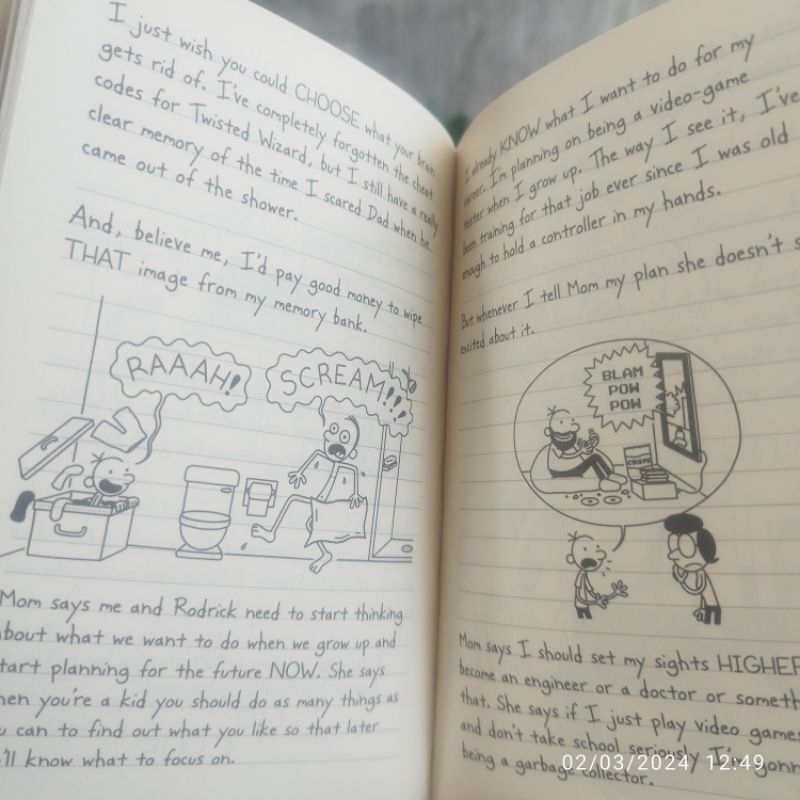 I just wish you could CHOOSE what your brain
gets rid of. I've completely forgotten the cheat
codes for Twisted Wizard, but I still have a really
clear memory of the time I scared Dad when he
came out of the shower.
And, believe me, I'd pay good money to wipe
THAT image from my memory bank.
RAAAH!
SCREAM!!!
Mom says me and Rodrick need to start thinking
about what we want to do when we grow up and
start planning for the future NOW. She says
when you're a kid you should do as many things as
you can to find out what you like so that later
you'll know what to focus on.
I already KNOW what I want to do for my
career. I'm planning on being a video-game
tester when I grow up. The way I see it, I've
been training for that job ever since I was old
enough to hold a controller in my hands.
But whenever I tell Mom my plan she doesn't s
excited about it.
BLAM
POW
POW
CRISPS
Mom says I should set my sights HIGHER
become an engineer or a doctor or someth
that. She says if I just play video games
and don't take school seriously I'm gonn
being a garbage collector.
02/03/2024 12:49